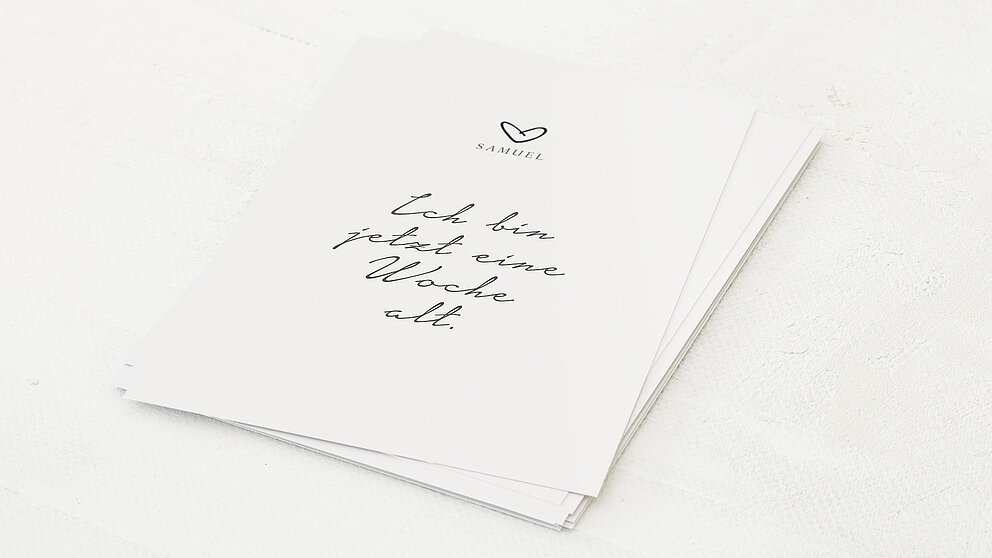 SAMUEL
Ich bin
jetzt eine
Woche
alt.